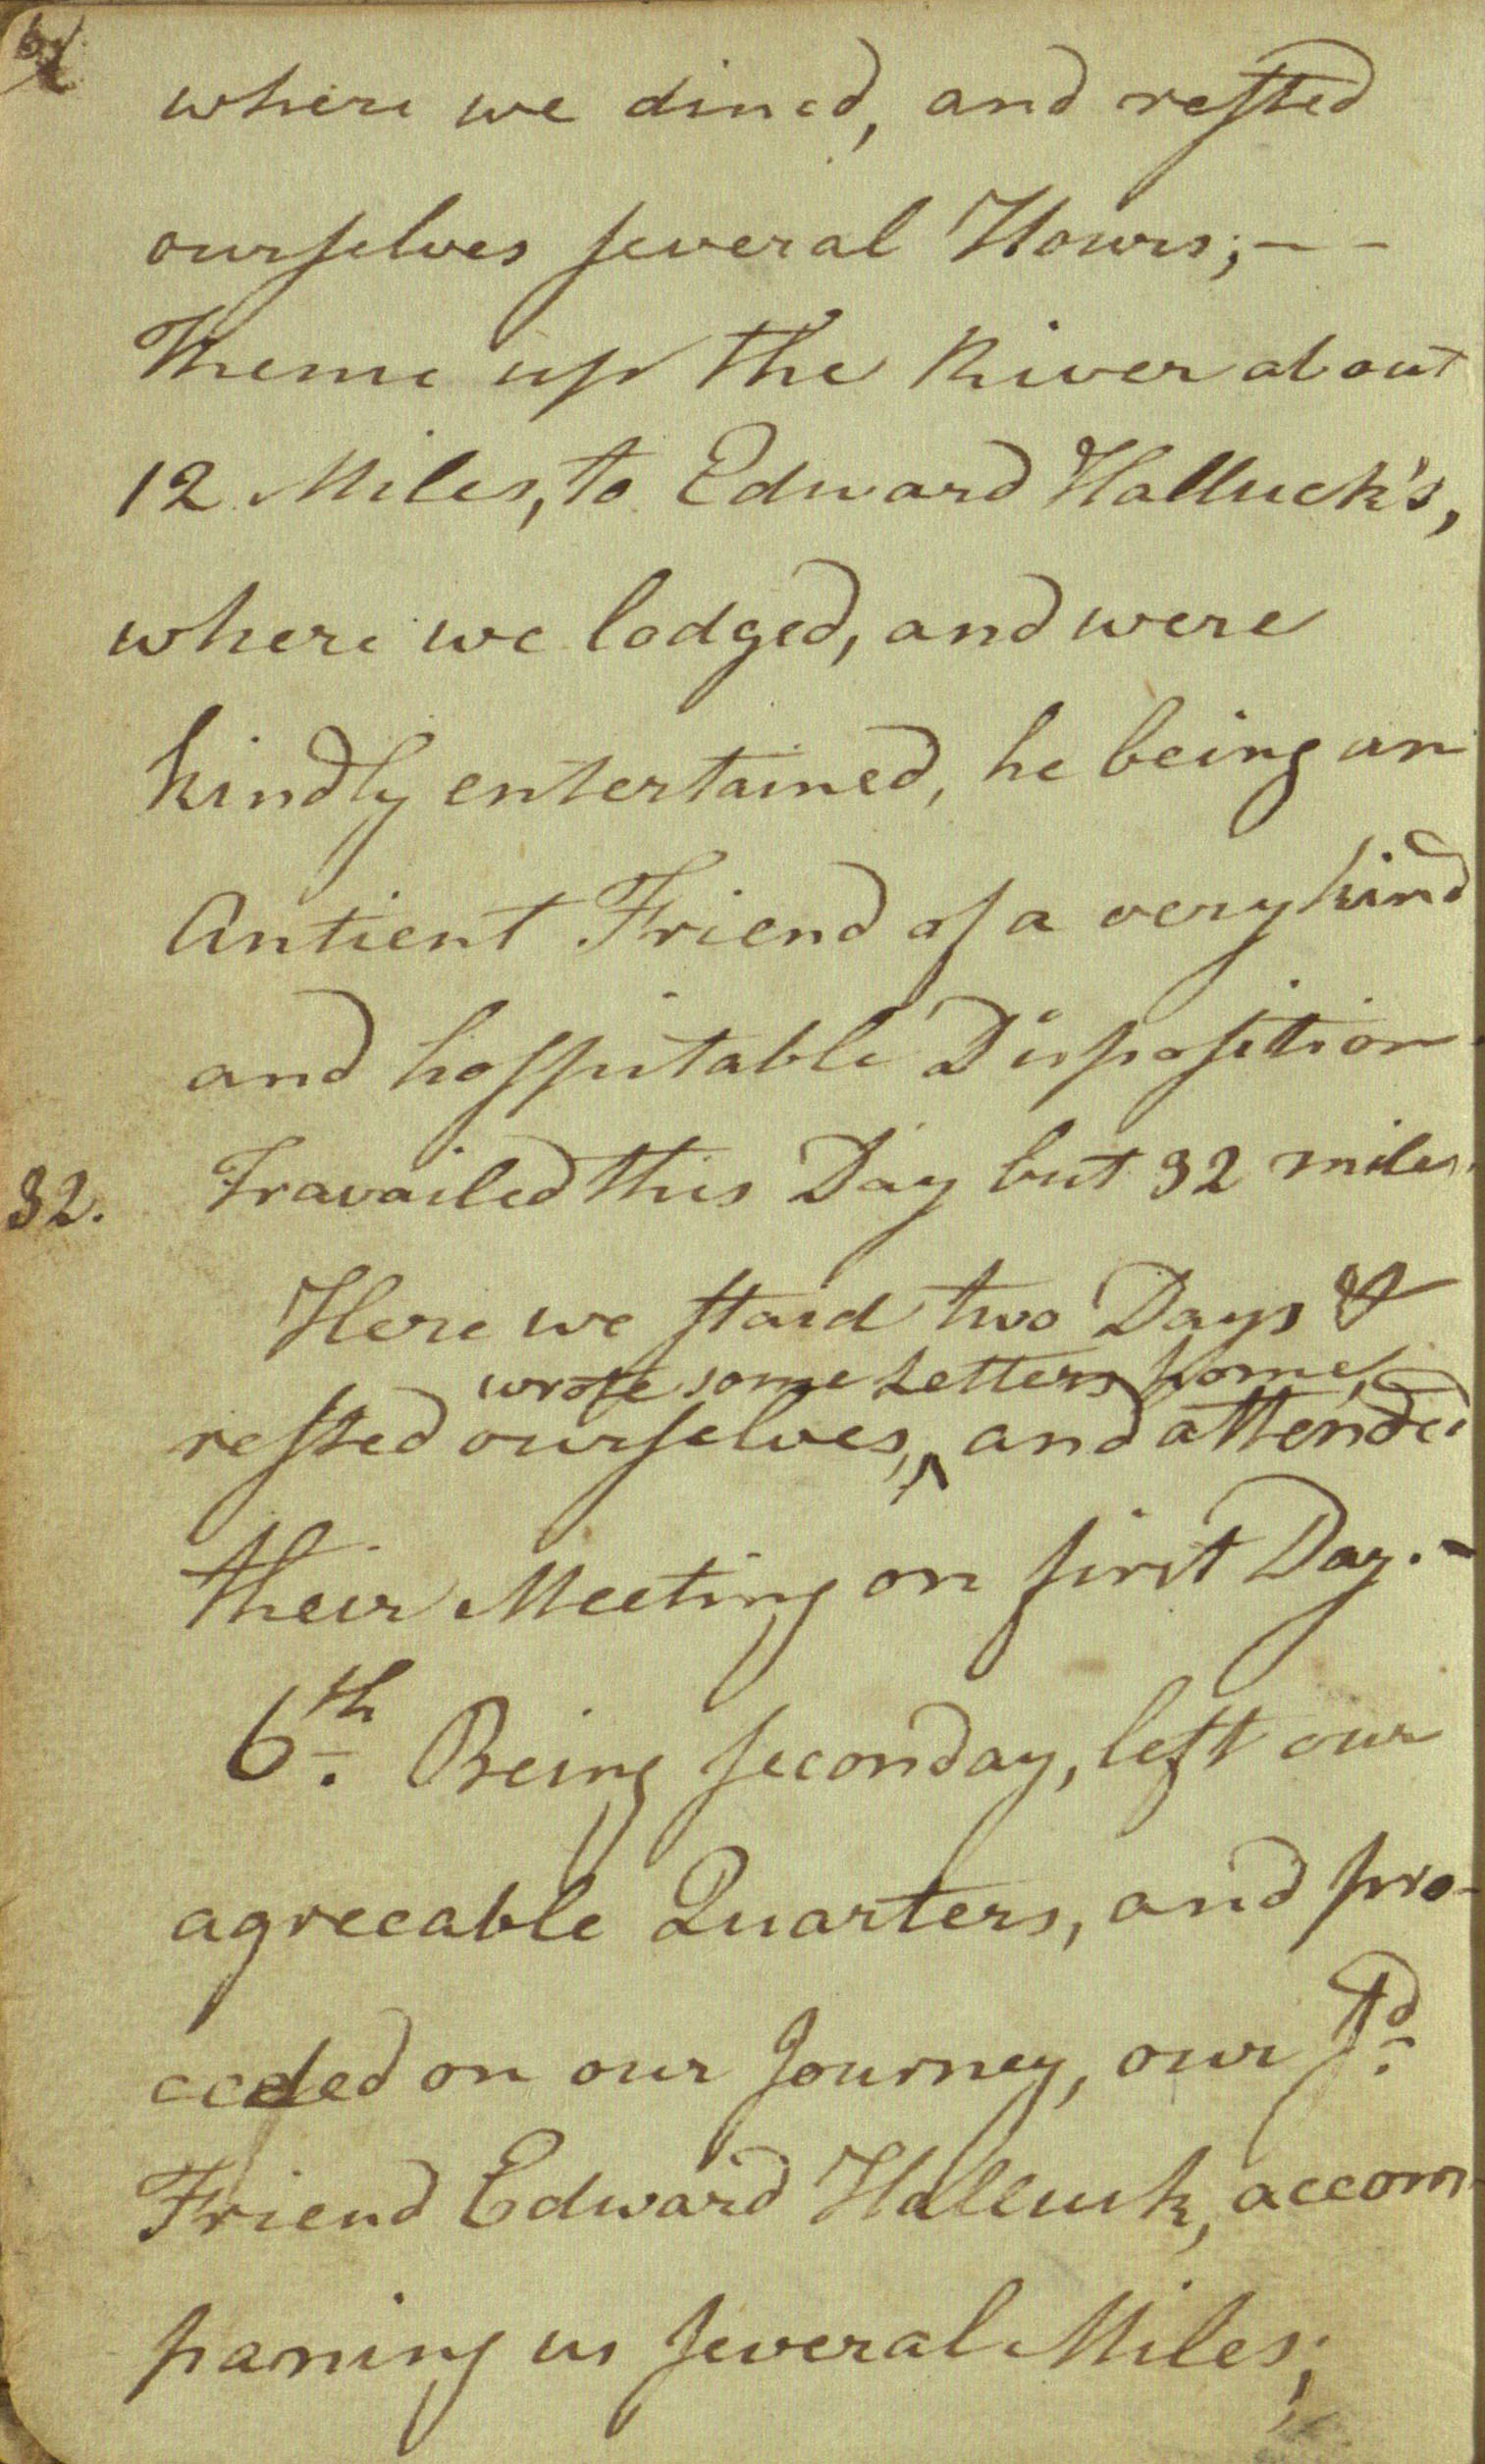 where we dined, and rested
ourselves several Hours; - -
Thence up the River about
12 Miles, to Edward Halluck's,
where we lodged, and were
kindly entertained, he being an
Antient Friend of a very kind
and hosspitable Disposition.
32. Travailed this Day but 32 miles.
Here we staid two Days &
wrote some Letters home,
rested ourselves, ^ and attended
their Meeting on first Day. -
6th. Being seconday, left our
agreeable Quarters, and pro-
ceeded on our Journey, our sd.
Friend Edward Halluck, accom-
paning us several Miles;